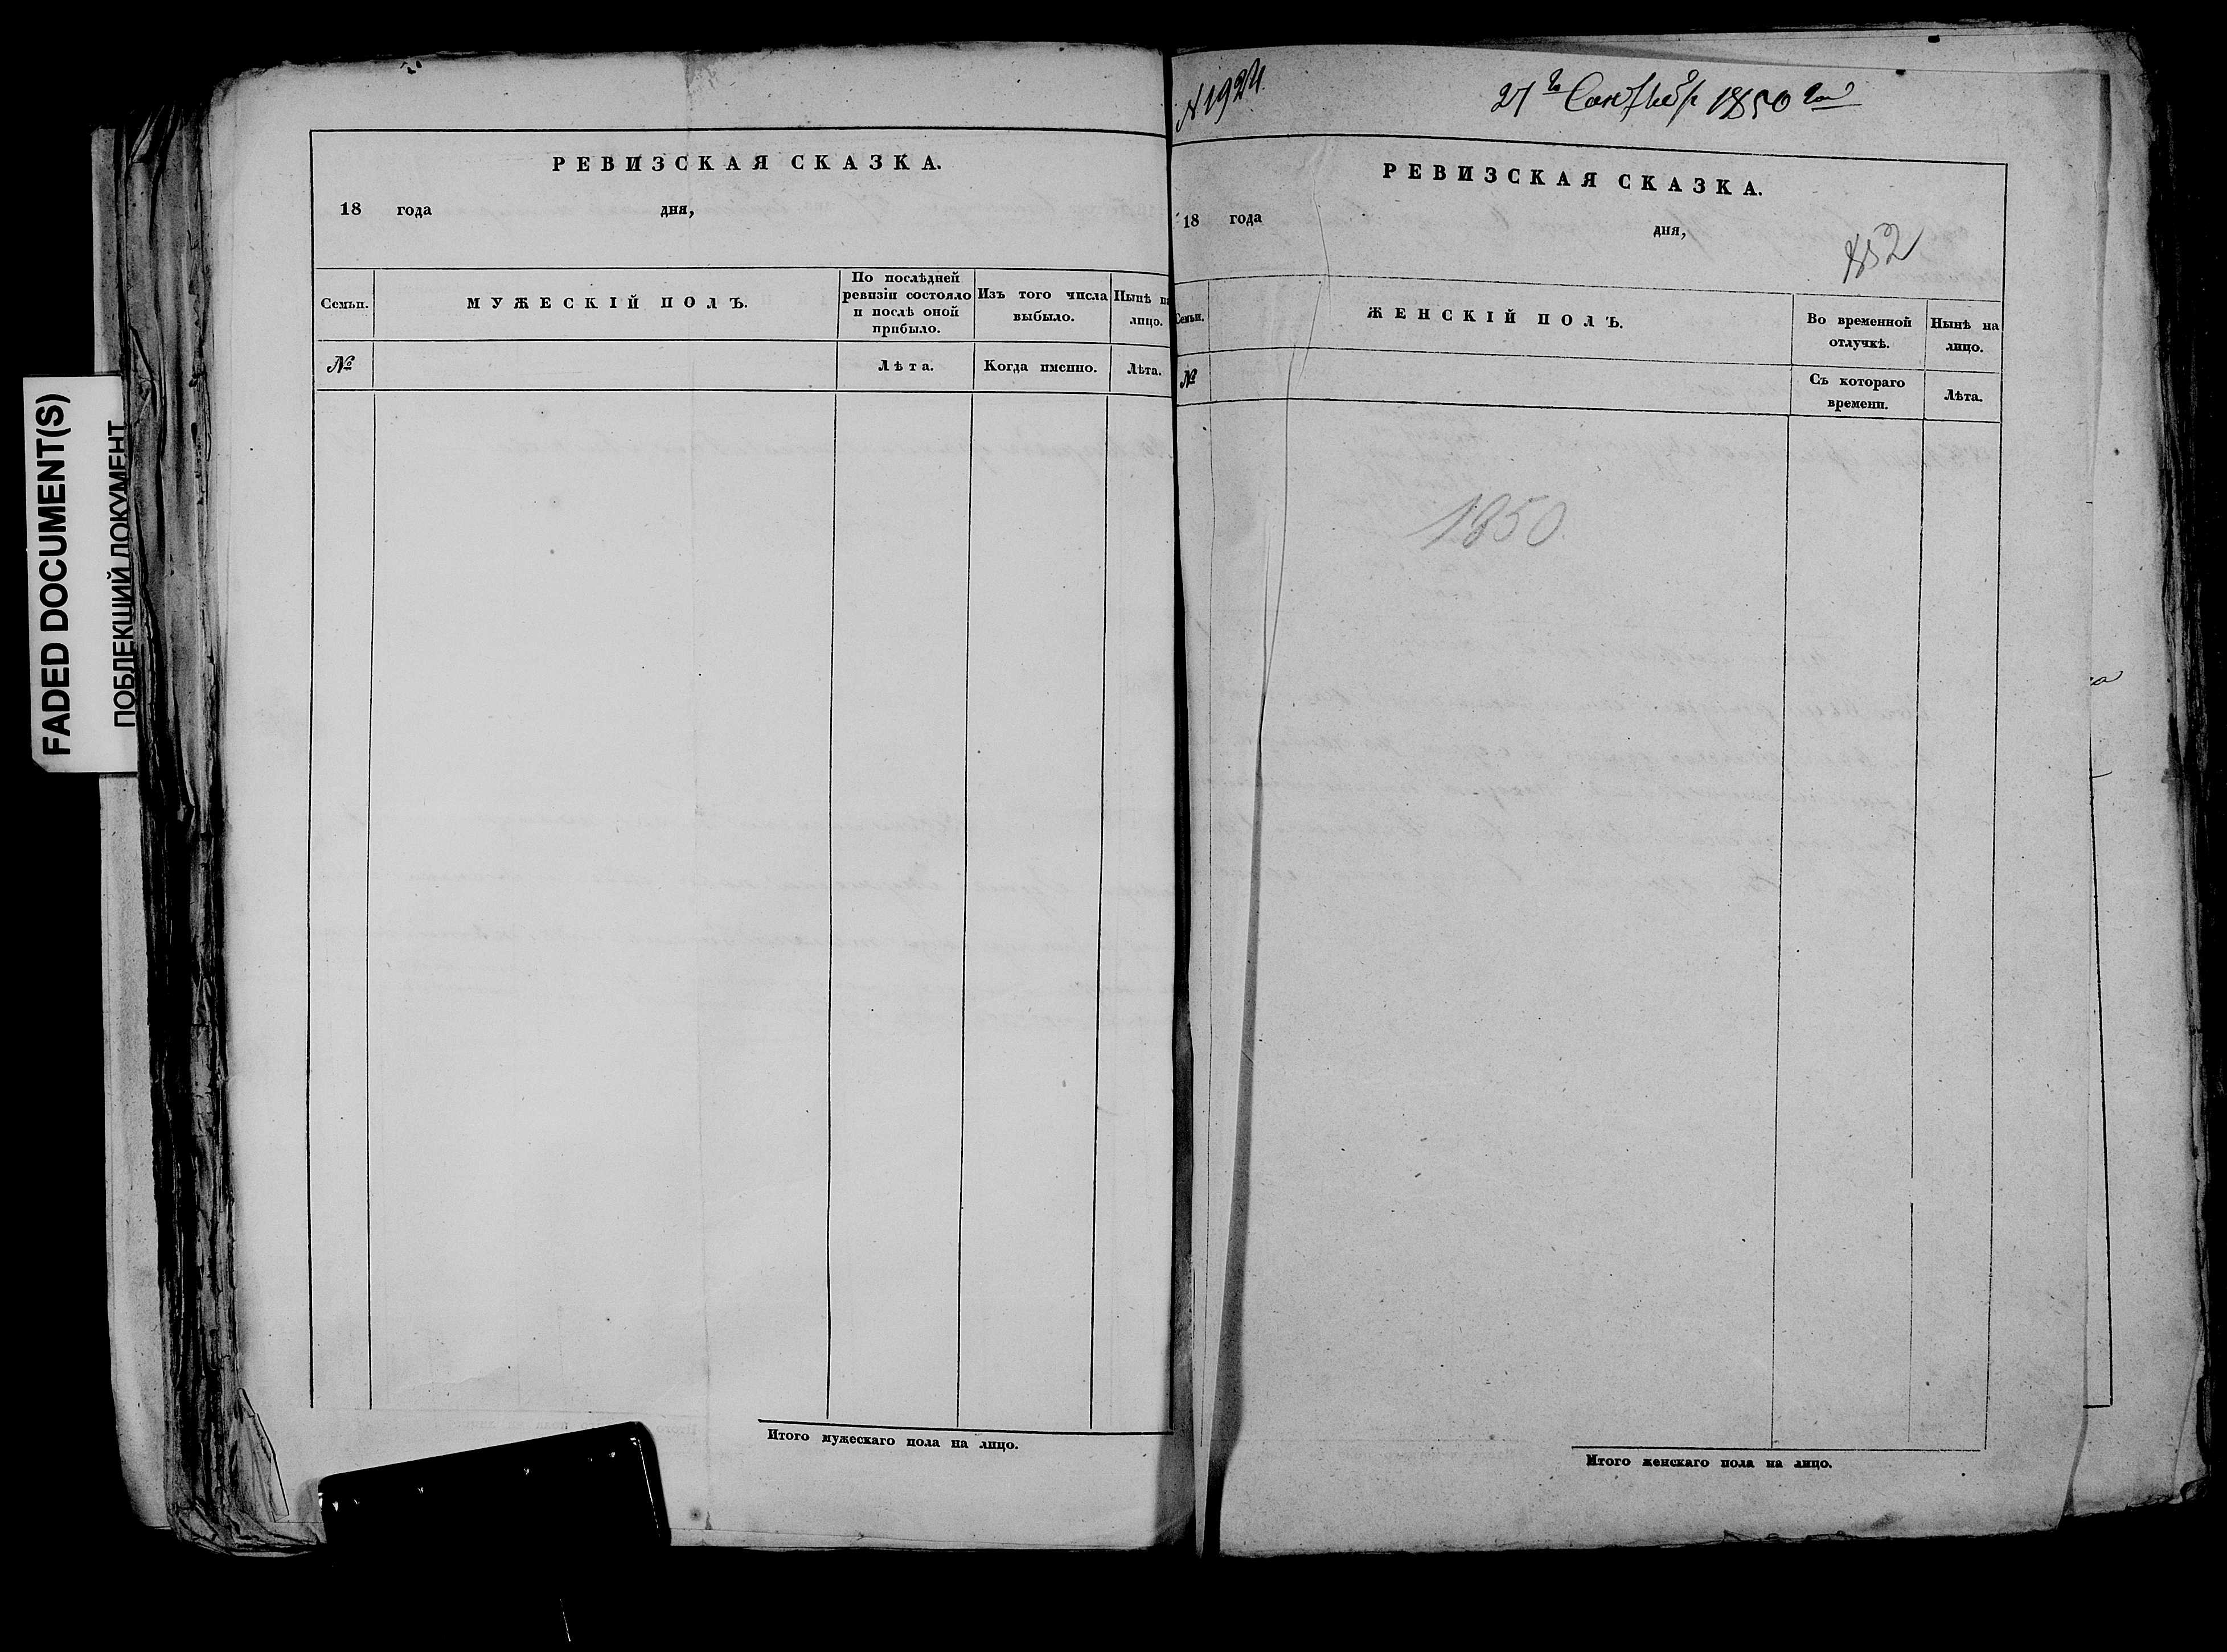 FADED DOCUMENT(S)
ПОБЛЕКШИЙ ДОКУМЕНТ
РЕВИЗСКАЯ СКАЗКА.
18 года дня,
Семьи.
МУЖЕСКІЙ ПОЛЪ.
По послѣдней
ревизіи состояло
и послѣ оной
прибыло.
Изъ того числа
выбыло.
Нынѣ на
лицо.
№
Лѣта.
Когда именно.
Лѣта.
Итого мужескаго пола на лицо.
№ 1924.
21го Сентября 1850 года
РЕВИЗСКАЯ СКАЗКА.
18 года
дня,
852
Семьи.
ЖЕНСКІЙ ПОЛЪ.
Во временной
отлучкѣ.
Нынѣ на
лицо.
№
Съ котораго
времени.
Лѣта.
1850.
Итого женскаго пола на лицо.